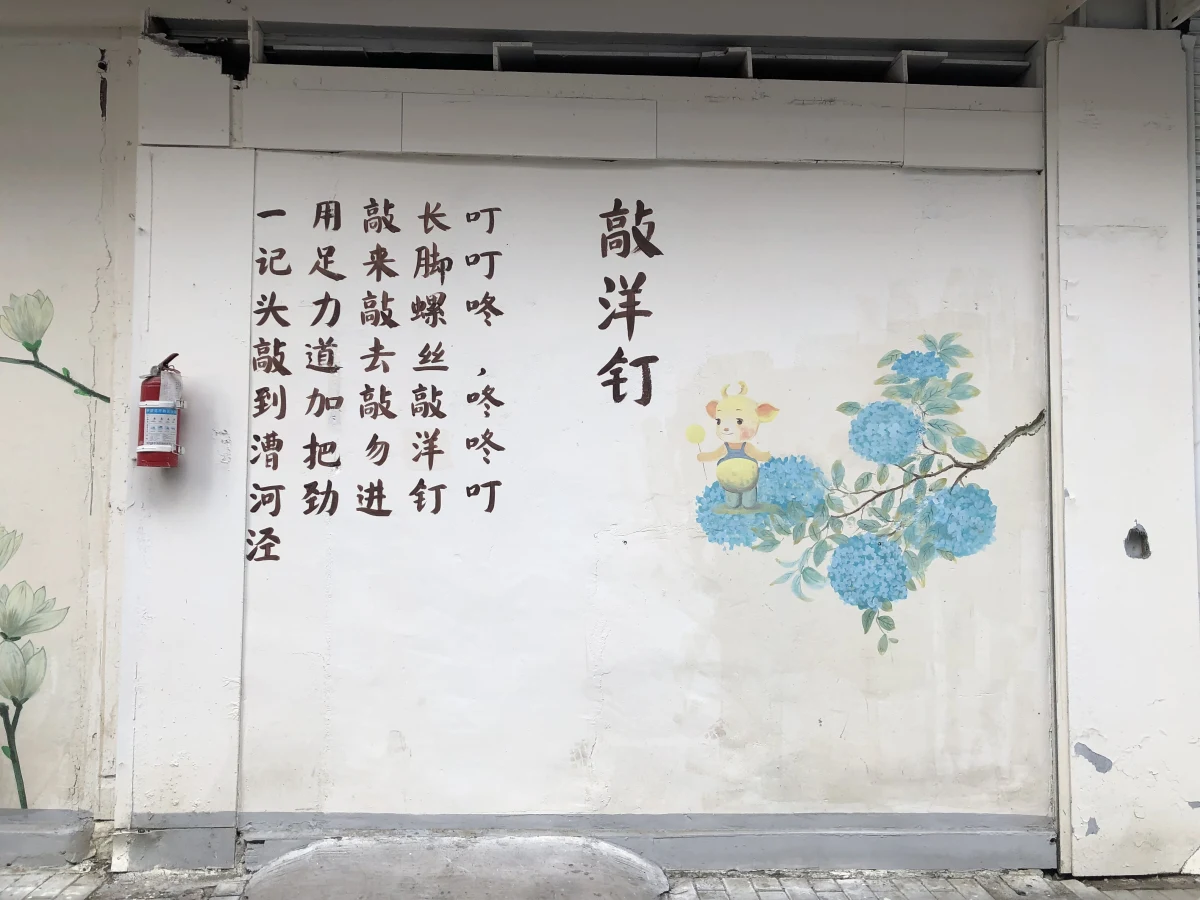 敲洋钉
叮叮咚，咚咚叮
长脚螺丝敲洋钉
敲来敲去敲勿进
用足力道加把劲
一记头敲到漕河泾